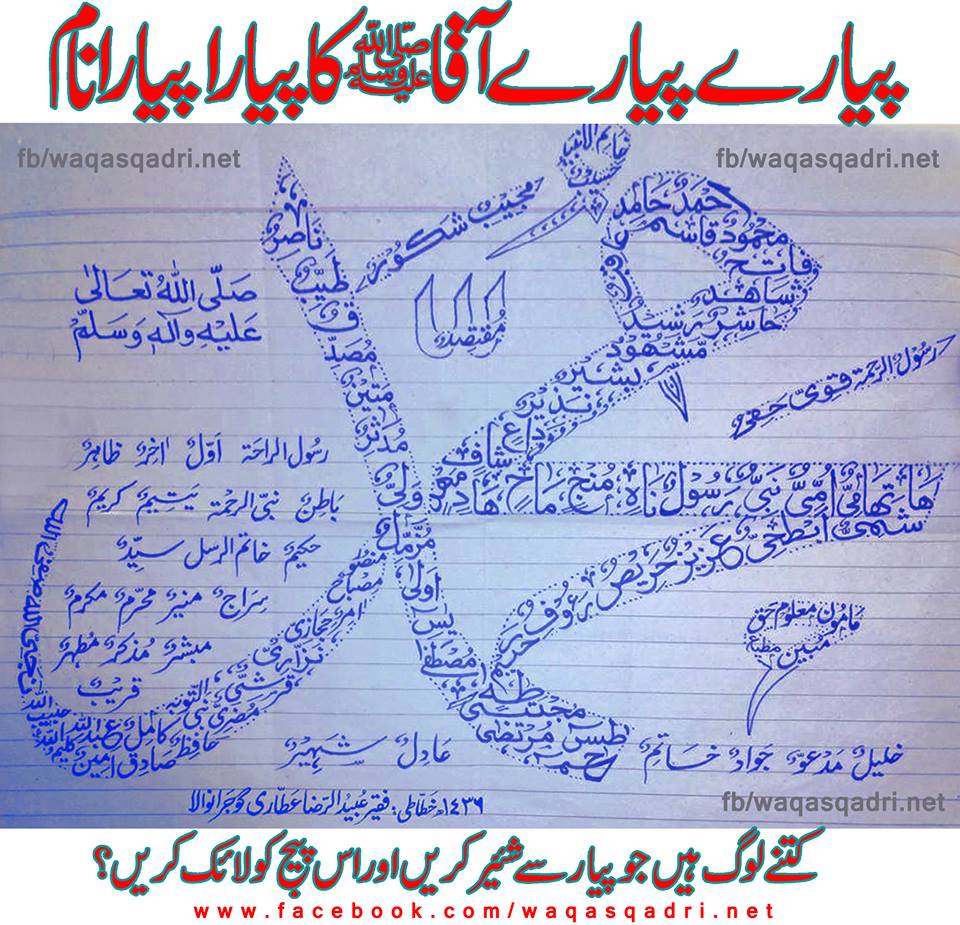 پیارے پیارے آقا ﷺ کا پیارا پیارا نام
fb/waqasqadri.net
fb/waqasqadri.net
خاتم الانبیا
حبیب
مجیب شکور
احمد حامد
محمود قاسم
فاتح
شاھد
حاشر رشید
مشھود
بشیر
نذیر
داع
شاف
ھاد
ماح
منج
ناہ
رسول
نبی
امی
تھامی
ناصر
طیب
مصدق
متین
مدثر
ولی
مزمل
اولی
یس
مصطفی
طہ
مجتبی
طس مرتضی
حم
مقتصد
صَلَّی اللّٰہُ تَعَالٰی
عَلَیْہِ وَاٰلِہٖ وَسَلَّمْ
رسول الرحمۃ قوی حفی
رسول الراحۃ اول اخر ظاھر
باطن نبی الرحمۃ یتیم کریم
حکیم خاتم الرسل سید
سراج منیر محرم مکرم
مبشر مذکر مطھر
قریب
عزیز حریص رءوف رحیم
مصباح
امر حجازی
نزاری
قرشی
مضری نبی التوبہ
حافظ کامل عبداللہ
صادق امین کلیم اللہ
حبیب اللہ
مامون معلوم حق
مبین مطیع
عادل شھیر
خلیل مدعو جواد خاتم
۱۴۳۶ھ خطاطی: فقیر عبید الرضا عطاری گوجرانوالا
fb/waqasqadri.net
کتنے لوگ ہیں جو پیار سے شئیر کریں اور اس پیج کو لائک کریں؟
www.facebook.com/waqasqadri.net